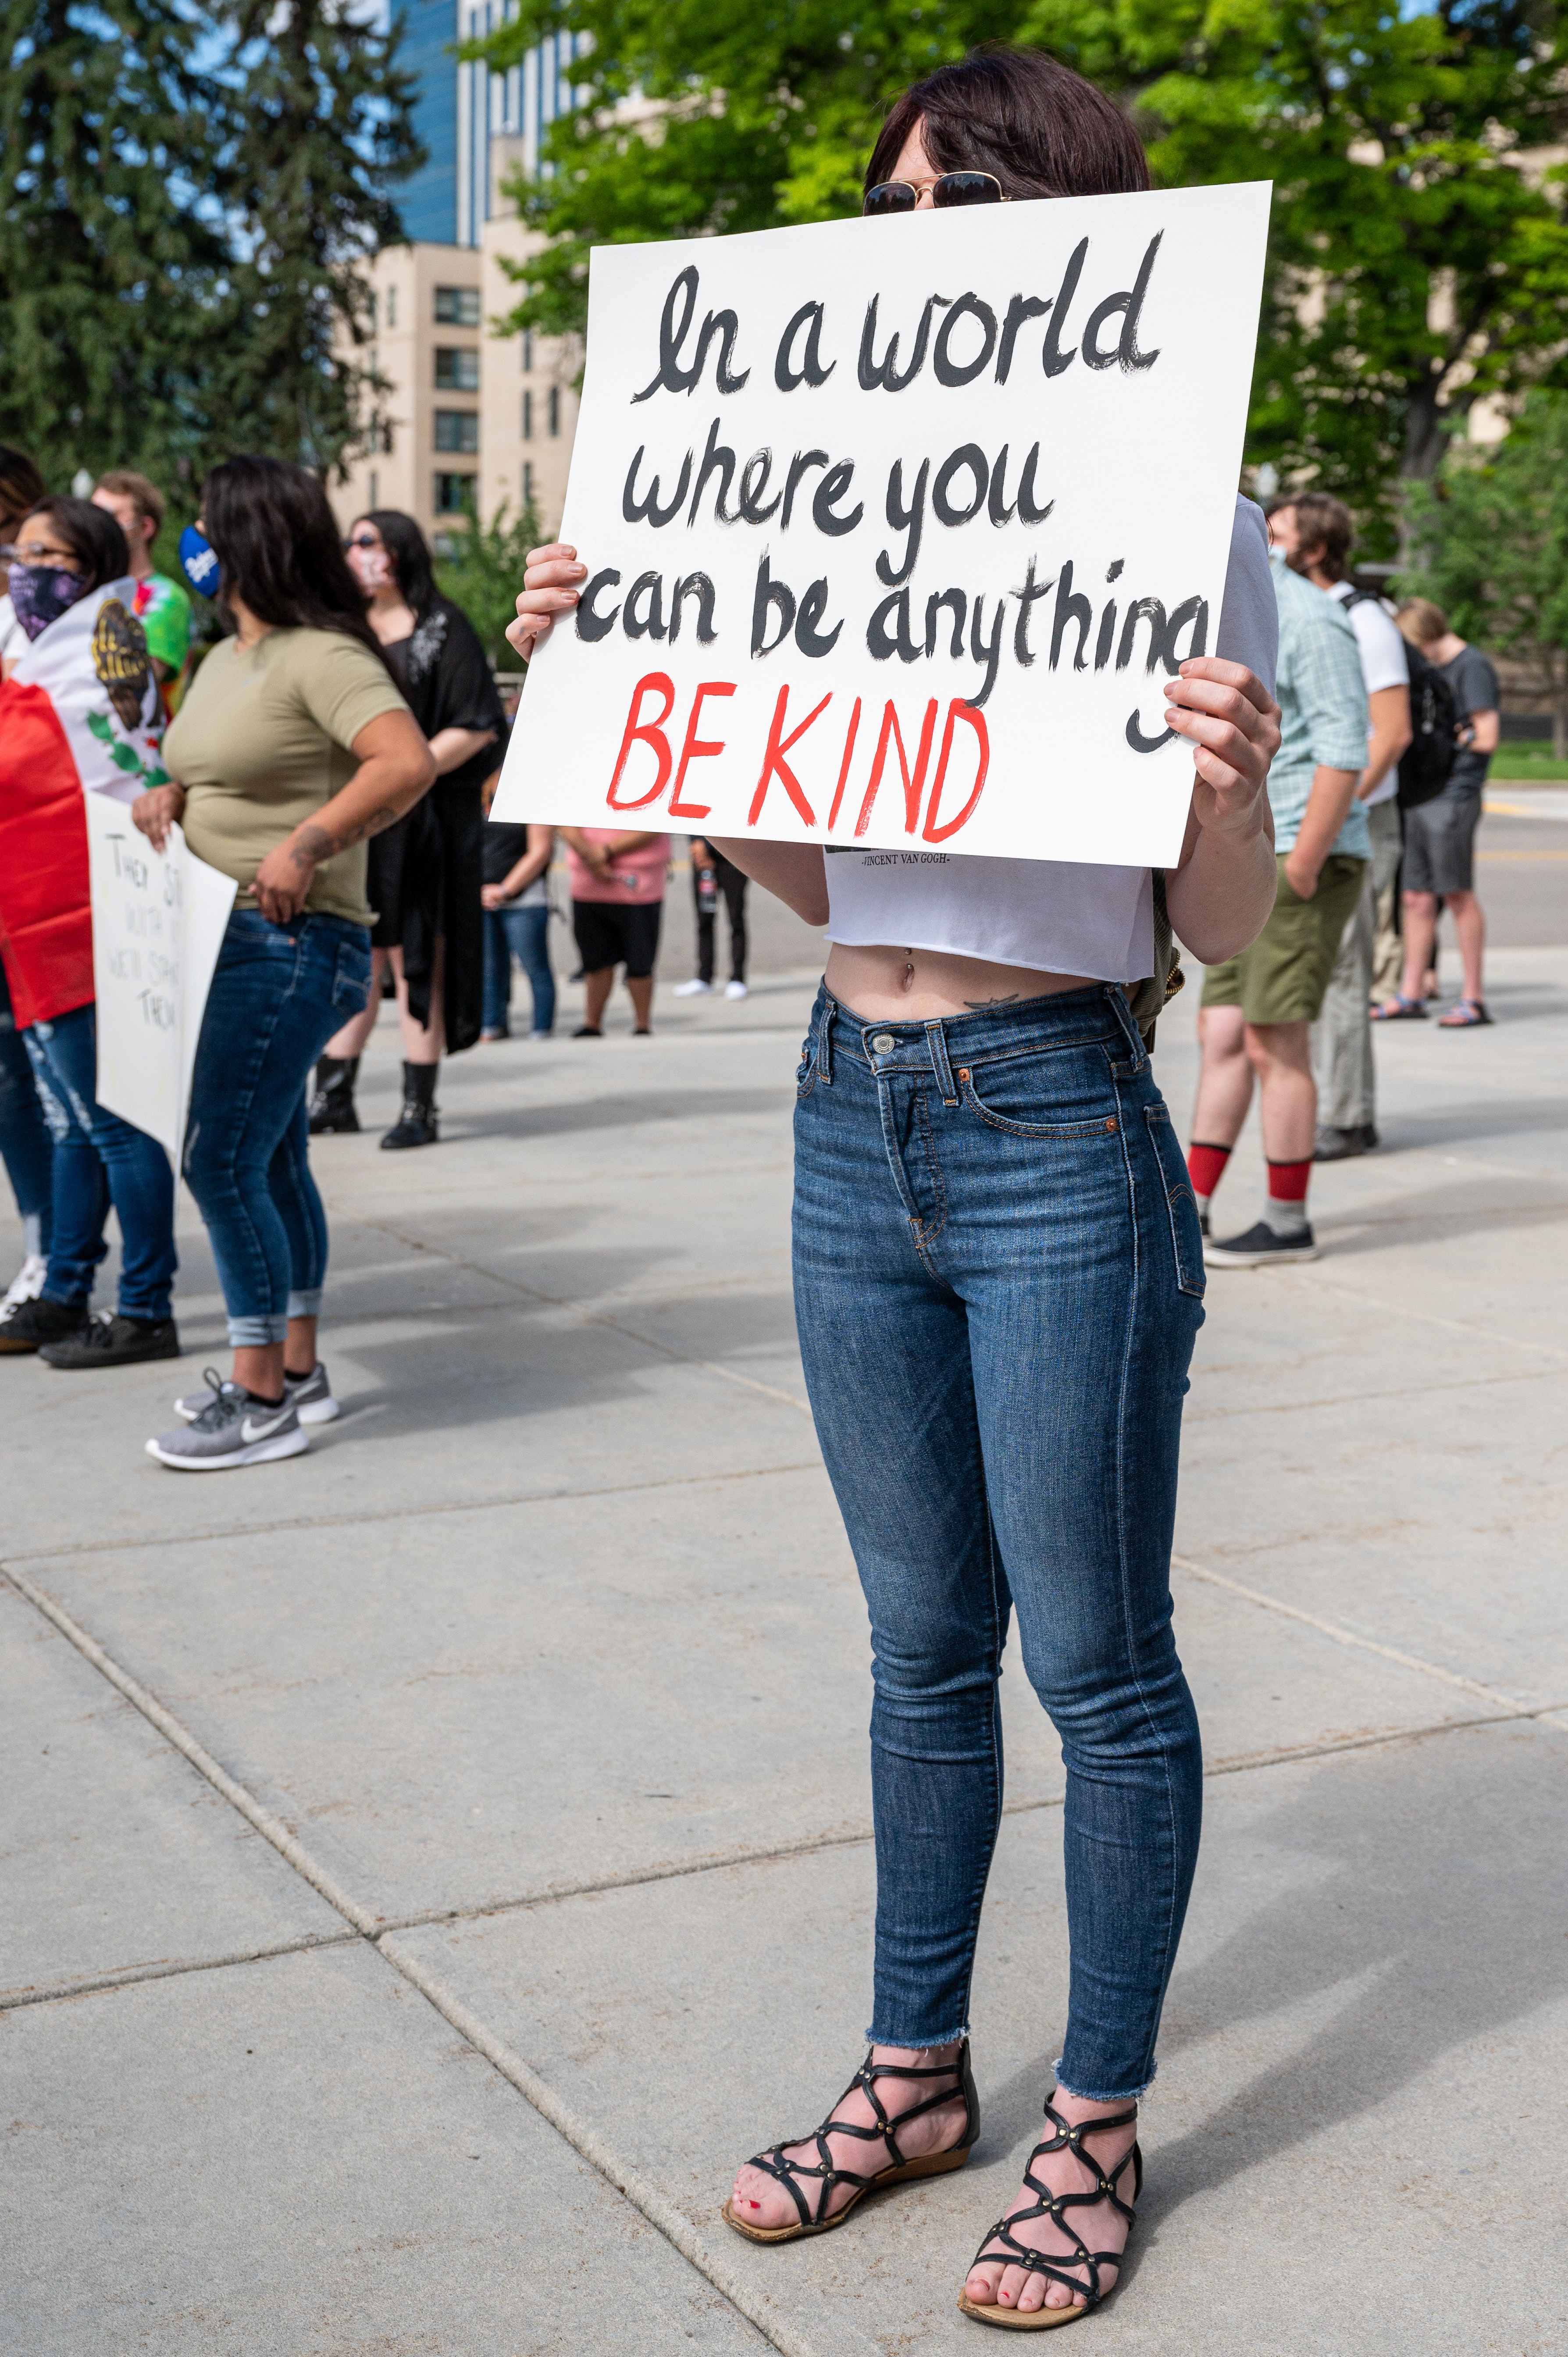 In a world
where you
can be anything
BE KIND
-VINCENT VAN GOGH-
THEY
WITH
WE'LL
THEM
Dodgers